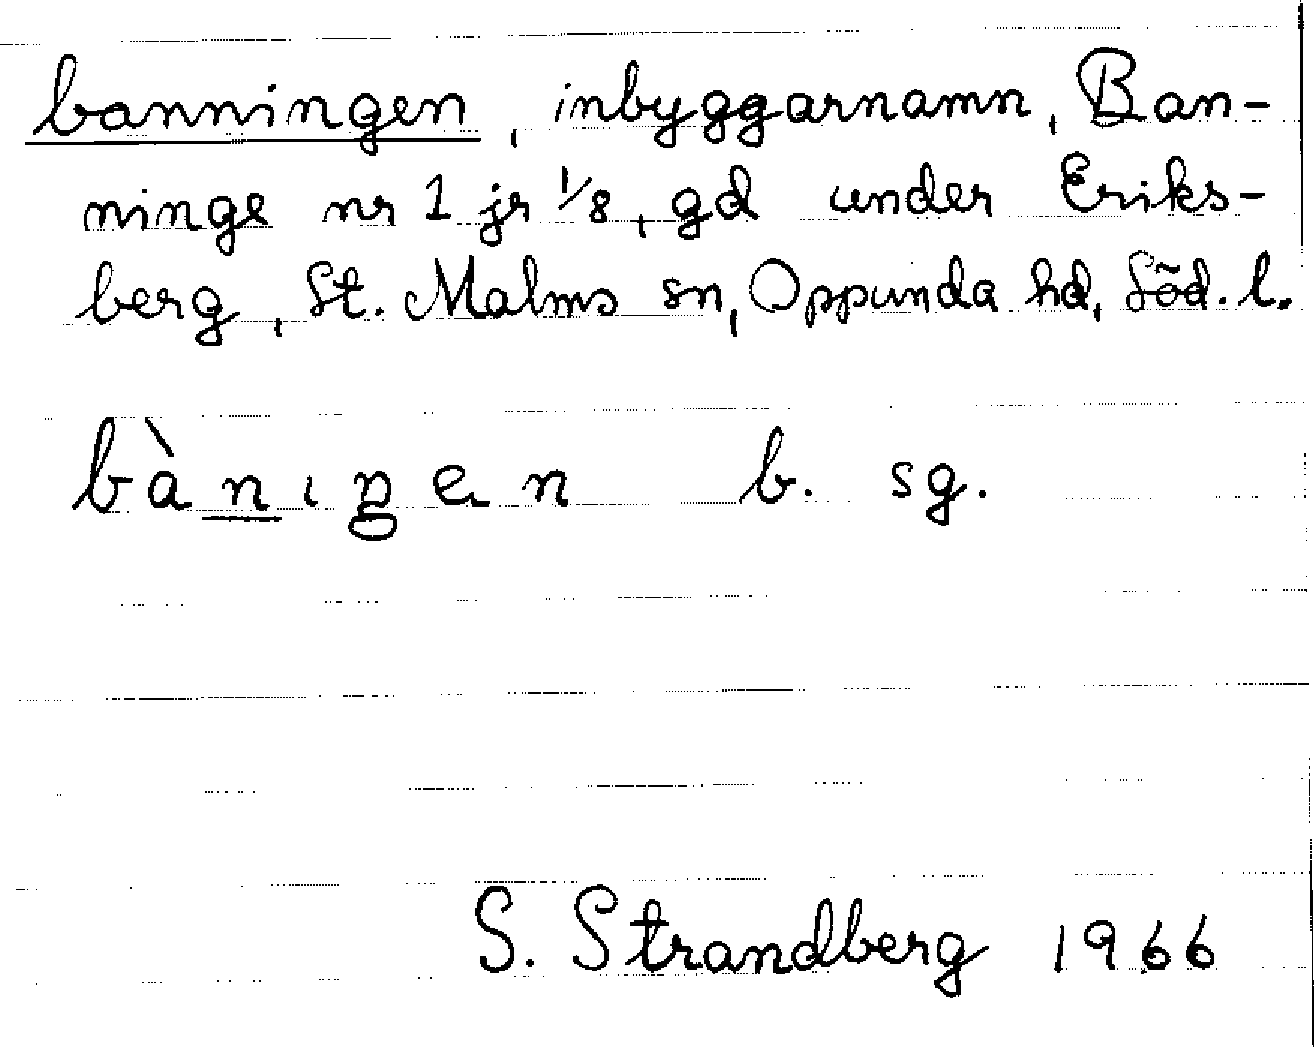 banningen, inbyggarnamn, Ban-
ninge nr 1 jr 1/8, gd under Eriks-
berg, St. Malms sn, Oppunda hd, Söd. l.
bànıŋen b. sg.
S. Strandberg 1966